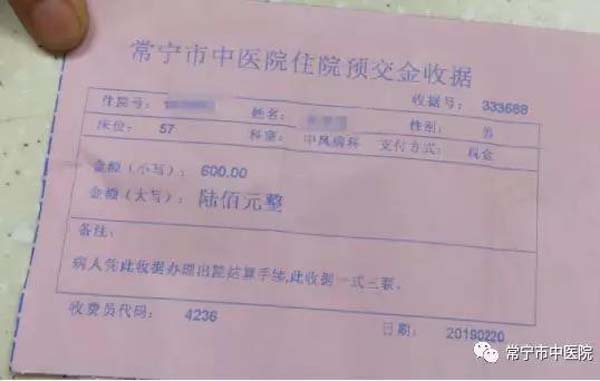 常宁市中医院住院预交金收据
收据号: 333688
住院号: 姓名: 性别: 男
床位: 57 科室: 中风病科 支付方式: 现金
金额(小写): 600.00
金额(大写): 陆佰元整
备注:
病人凭此收据办理出院结算手续,此收据一式三联.
收费员代码: 4236 日期: 20190220
常宁市中医院